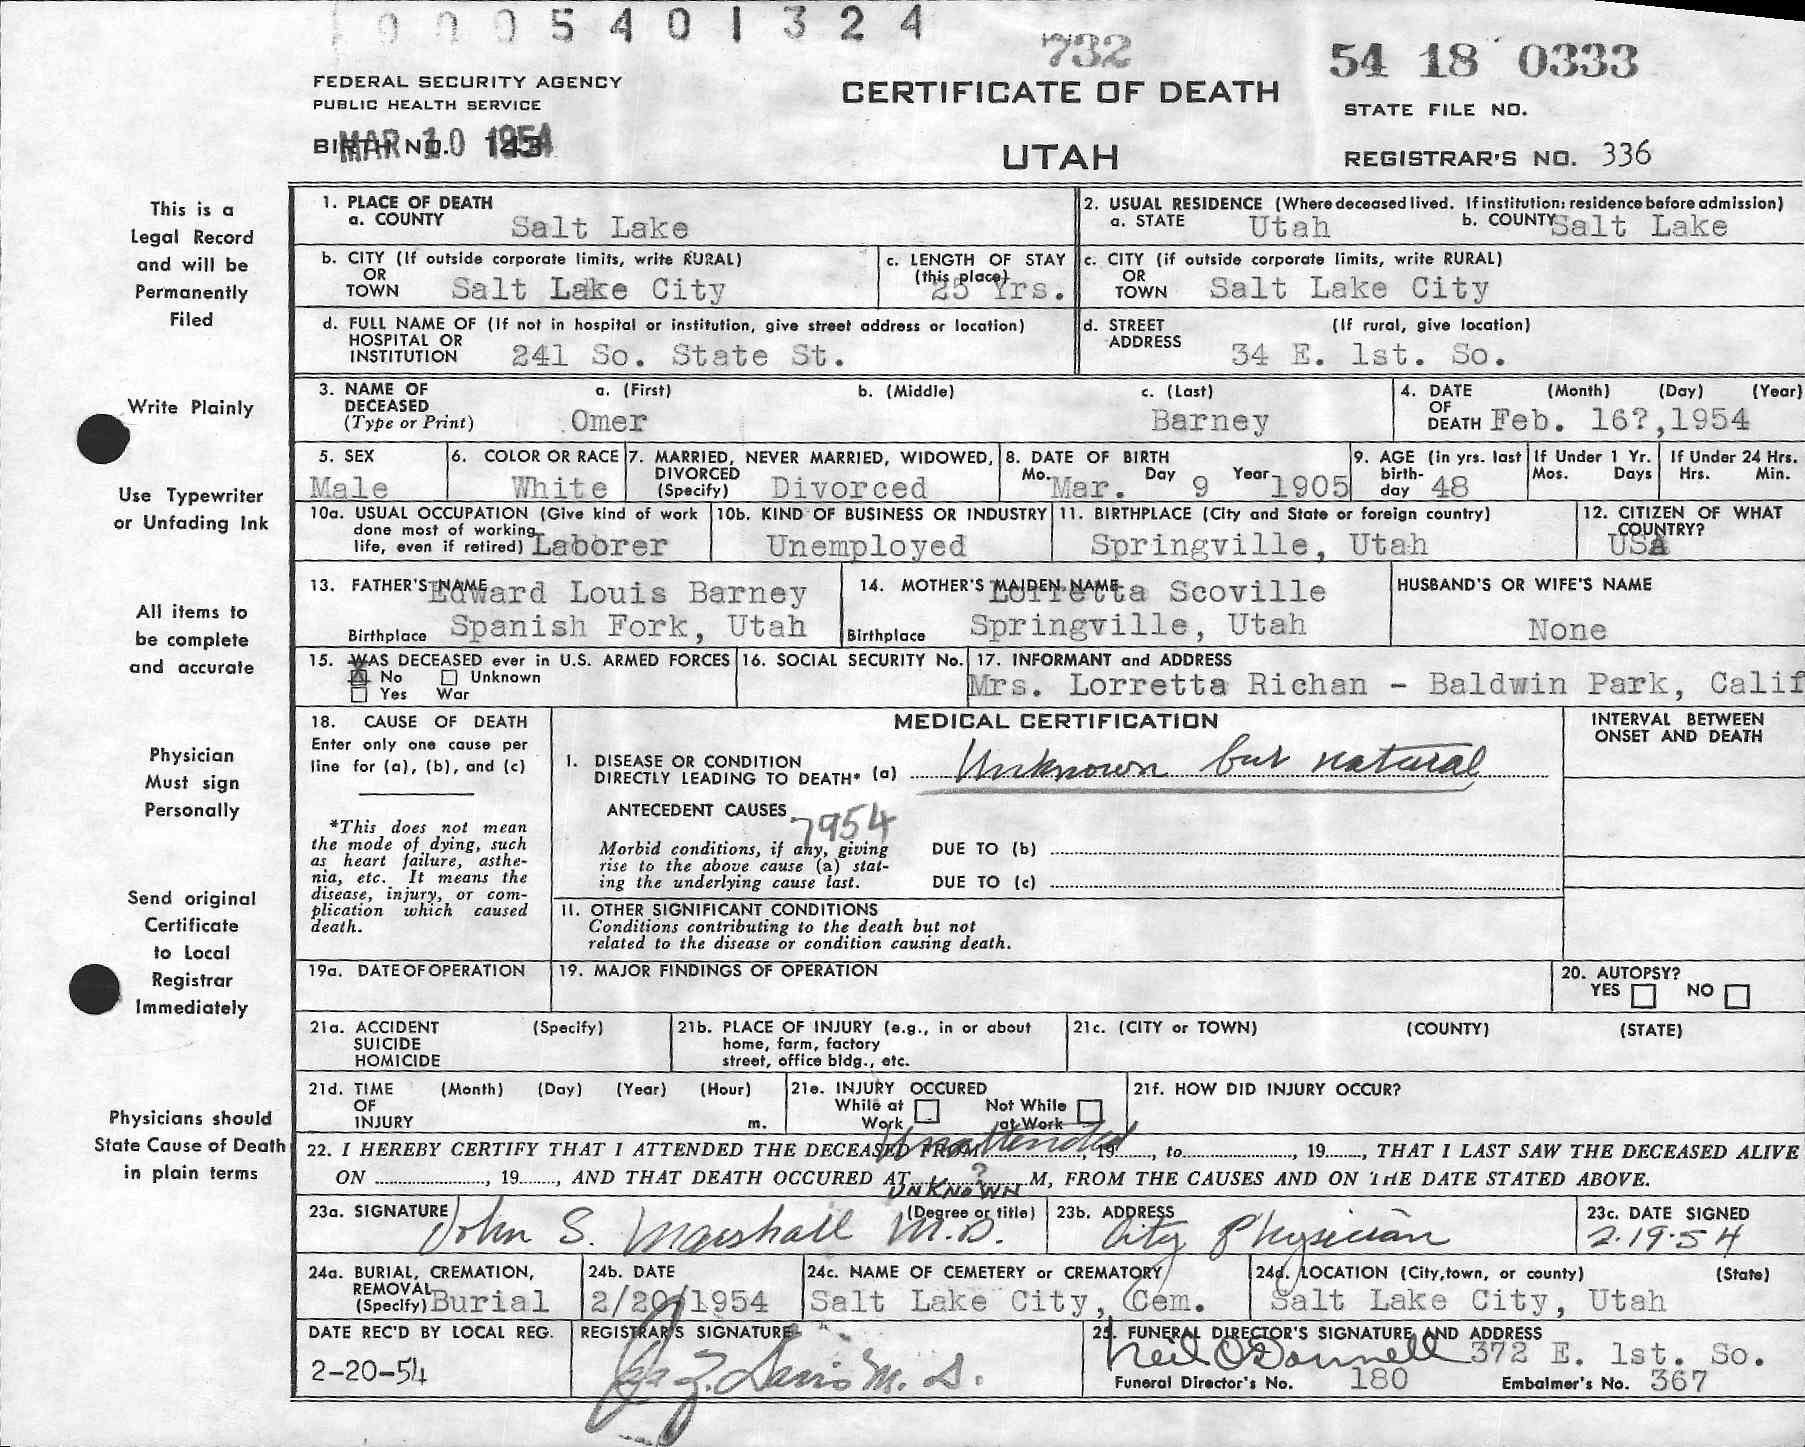 0005401324
732
54 18 0333
FEDERAL SECURITY AGENCY
PUBLIC HEALTH SERVICE
CERTIFICATE OF DEATH
STATE FILE NO.
BIRTH NO. 143
MAR 10 1954
UTAH
REGISTRAR'S NO. 336
This is a
Legal Record
and will be
Permanently
Filed
Write Plainly
Use Typewriter
or Unfading Ink
All items to
be complete
and accurate
Physician
Must sign
Personally
Send original
Certificate
to Local
Registrar
Immediately
Physicians should
State Cause of Death
in plain terms
1. PLACE OF DEATH
a. COUNTY Salt Lake
2. USUAL RESIDENCE (Where deceased lived. If institution: residence before admission)
a. STATE Utah b. COUNTY Salt Lake
b. CITY (If outside corporate limits, write RURAL)
OR
TOWN Salt Lake City
c. LENGTH OF STAY
(this place)
25 Yrs.
c. CITY (if outside corporate limits, write RURAL)
OR
TOWN Salt Lake City
d. FULL NAME OF (If not in hospital or institution, give street address or location)
HOSPITAL OR
INSTITUTION 241 So. State St.
d. STREET (If rural, give location)
ADDRESS 34 E. 1st. So.
3. NAME OF a. (First) b. (Middle) c. (Last)
DECEASED
(Type or Print) Omer Barney
4. DATE (Month) (Day) (Year)
OF
DEATH Feb. 16?, 1954
5. SEX
Male
6. COLOR OR RACE
White
7. MARRIED, NEVER MARRIED, WIDOWED,
DIVORCED
(Specify) Divorced
8. DATE OF BIRTH
Mo. Mar. Day 9 Year 1905
9. AGE (in yrs. last
birth-
day 48
If Under 1 Yr.
Mos. Days
If Under 24 Hrs.
Hrs. Min.
10a. USUAL OCCUPATION (Give kind of work
done most of working
life, even if retired) Laborer
10b. KIND OF BUSINESS OR INDUSTRY
Unemployed
11. BIRTHPLACE (City and State or foreign country)
Springville, Utah
12. CITIZEN OF WHAT
COUNTRY?
USA
13. FATHER'S NAME Edward Louis Barney
Birthplace Spanish Fork, Utah
14. MOTHER'S MAIDEN NAME Lorretta Scoville
Birthplace Springville, Utah
HUSBAND'S OR WIFE'S NAME
None
15. WAS DECEASED ever in U.S. ARMED FORCES
No Unknown
Yes War
16. SOCIAL SECURITY No.
17. INFORMANT and ADDRESS
Mrs. Lorretta Richan - Baldwin Park, Calif
18. CAUSE OF DEATH
Enter only one cause per
line for (a), (b), and (c)
*This does not mean
the mode of dying, such
as heart failure, asthe-
nia, etc. It means the
disease, injury, or com-
plication which caused
death.
MEDICAL CERTIFICATION
INTERVAL BETWEEN
ONSET AND DEATH
I. DISEASE OR CONDITION
DIRECTLY LEADING TO DEATH* (a) Unknown but natural
ANTECEDENT CAUSES
7954
Morbid conditions, if any, giving
rise to the above cause (a) stat-
ing the underlying cause last.
DUE TO (b)
DUE TO (c)
II. OTHER SIGNIFICANT CONDITIONS
Conditions contributing to the death but not
related to the disease or condition causing death.
19a. DATE OF OPERATION
19. MAJOR FINDINGS OF OPERATION
20. AUTOPSY?
YES NO
21a. ACCIDENT (Specify)
SUICIDE
HOMICIDE
21b. PLACE OF INJURY (e.g., in or about
home, farm, factory
street, office bldg., etc.
21c. (CITY or TOWN) (COUNTY) (STATE)
21d. TIME (Month) (Day) (Year) (Hour)
OF
INJURY m.
21e. INJURY OCCURED
While at Not While
Work at Work
21f. HOW DID INJURY OCCUR?
22. I HEREBY CERTIFY THAT I ATTENDED THE DECEASED FROM Unattended, 19, to, 19, THAT I LAST SAW THE DECEASED ALIVE
ON, 19, AND THAT DEATH OCCURED AT ? M, FROM THE CAUSES AND ON THE DATE STATED ABOVE.
UNKNOWN
23a. SIGNATURE (Degree or title)
John S. Marshall M.D.
23b. ADDRESS
City Physician
23c. DATE SIGNED
2.19.54
24a. BURIAL, CREMATION,
REMOVAL
(Specify) Burial
24b. DATE
2/20/1954
24c. NAME OF CEMETERY or CREMATORY
Salt Lake City, Cem.
24d. LOCATION (City, town, or county) (State)
Salt Lake City, Utah
DATE REC'D BY LOCAL REG.
2-20-54
REGISTRAR'S SIGNATURE
Davis M.D.
25. FUNERAL DIRECTOR'S SIGNATURE AND ADDRESS
Neil O'Donnell 372 E. 1st. So.
Funeral Director's No. 180 Embalmer's No. 367